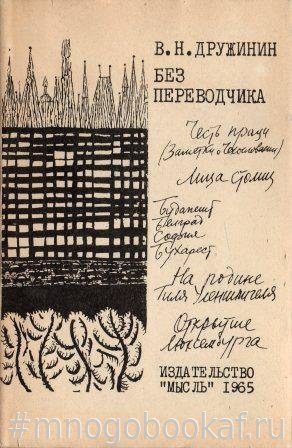 В. Н. ДРУЖИНИН
БЕЗ
ПЕРЕВОДЧИКА
Честь праци
(Заметки о Чехословакии)
Лица столиц
Будапешт
Белград
София
Бухарест
На родине
Тиля Уленшпигеля
Открытие
Люксембурга
ИЗДАТЕЛЬСТВО
"МЫСЛЬ" 1965
#mnogobookaf.ru